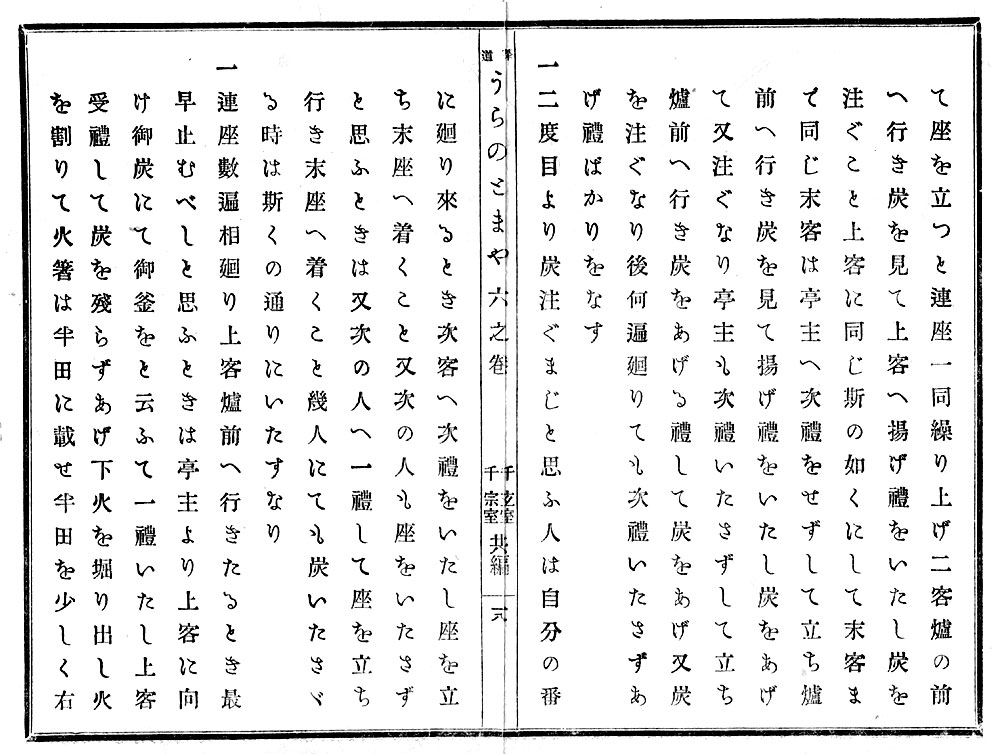 て座を立つと連座一同繰り上げ二客爐の前
へ行き炭を見て上客へ揚げ禮をいたし炭を
注ぐこと上客に同じ斯の如くにして末客ま
で同じ末客は亭主へ次禮をせずして立ち爐
前へ行き炭を見て揚げ禮をいたし炭をあげ
て又注ぐなり亭主も次禮いたさずして立ち
爐前へ行き炭をあげる禮して炭をあげ又炭
を注ぐなり後何遍廻りても次禮いたさずあ
げ禮ばかりをなす
一二度目より炭注ぐまじと思ふ人は自分の番
茶道
うらのとまや 六之卷
千玄室
千宗室
共編
に廻り來るとき次客へ次禮をいたし座を立
ち末座へ着くこと又次の人も座をいたさず
と思ふときは又次の人へ一禮して座を立ち
行き末座へ着くこと幾人にても炭いたさゞ
る時は斯くの通りにいたすなり
一連座數遍相廻り上客爐前へ行きたるとき最
早止むべしと思ふときは亭主より上客に向
け御炭にて御釜をと云ふて一禮いたし上客
受禮して炭を殘らずあげ下火を堀り出し火
を割りて火箸は半田に載せ半田を少しく右